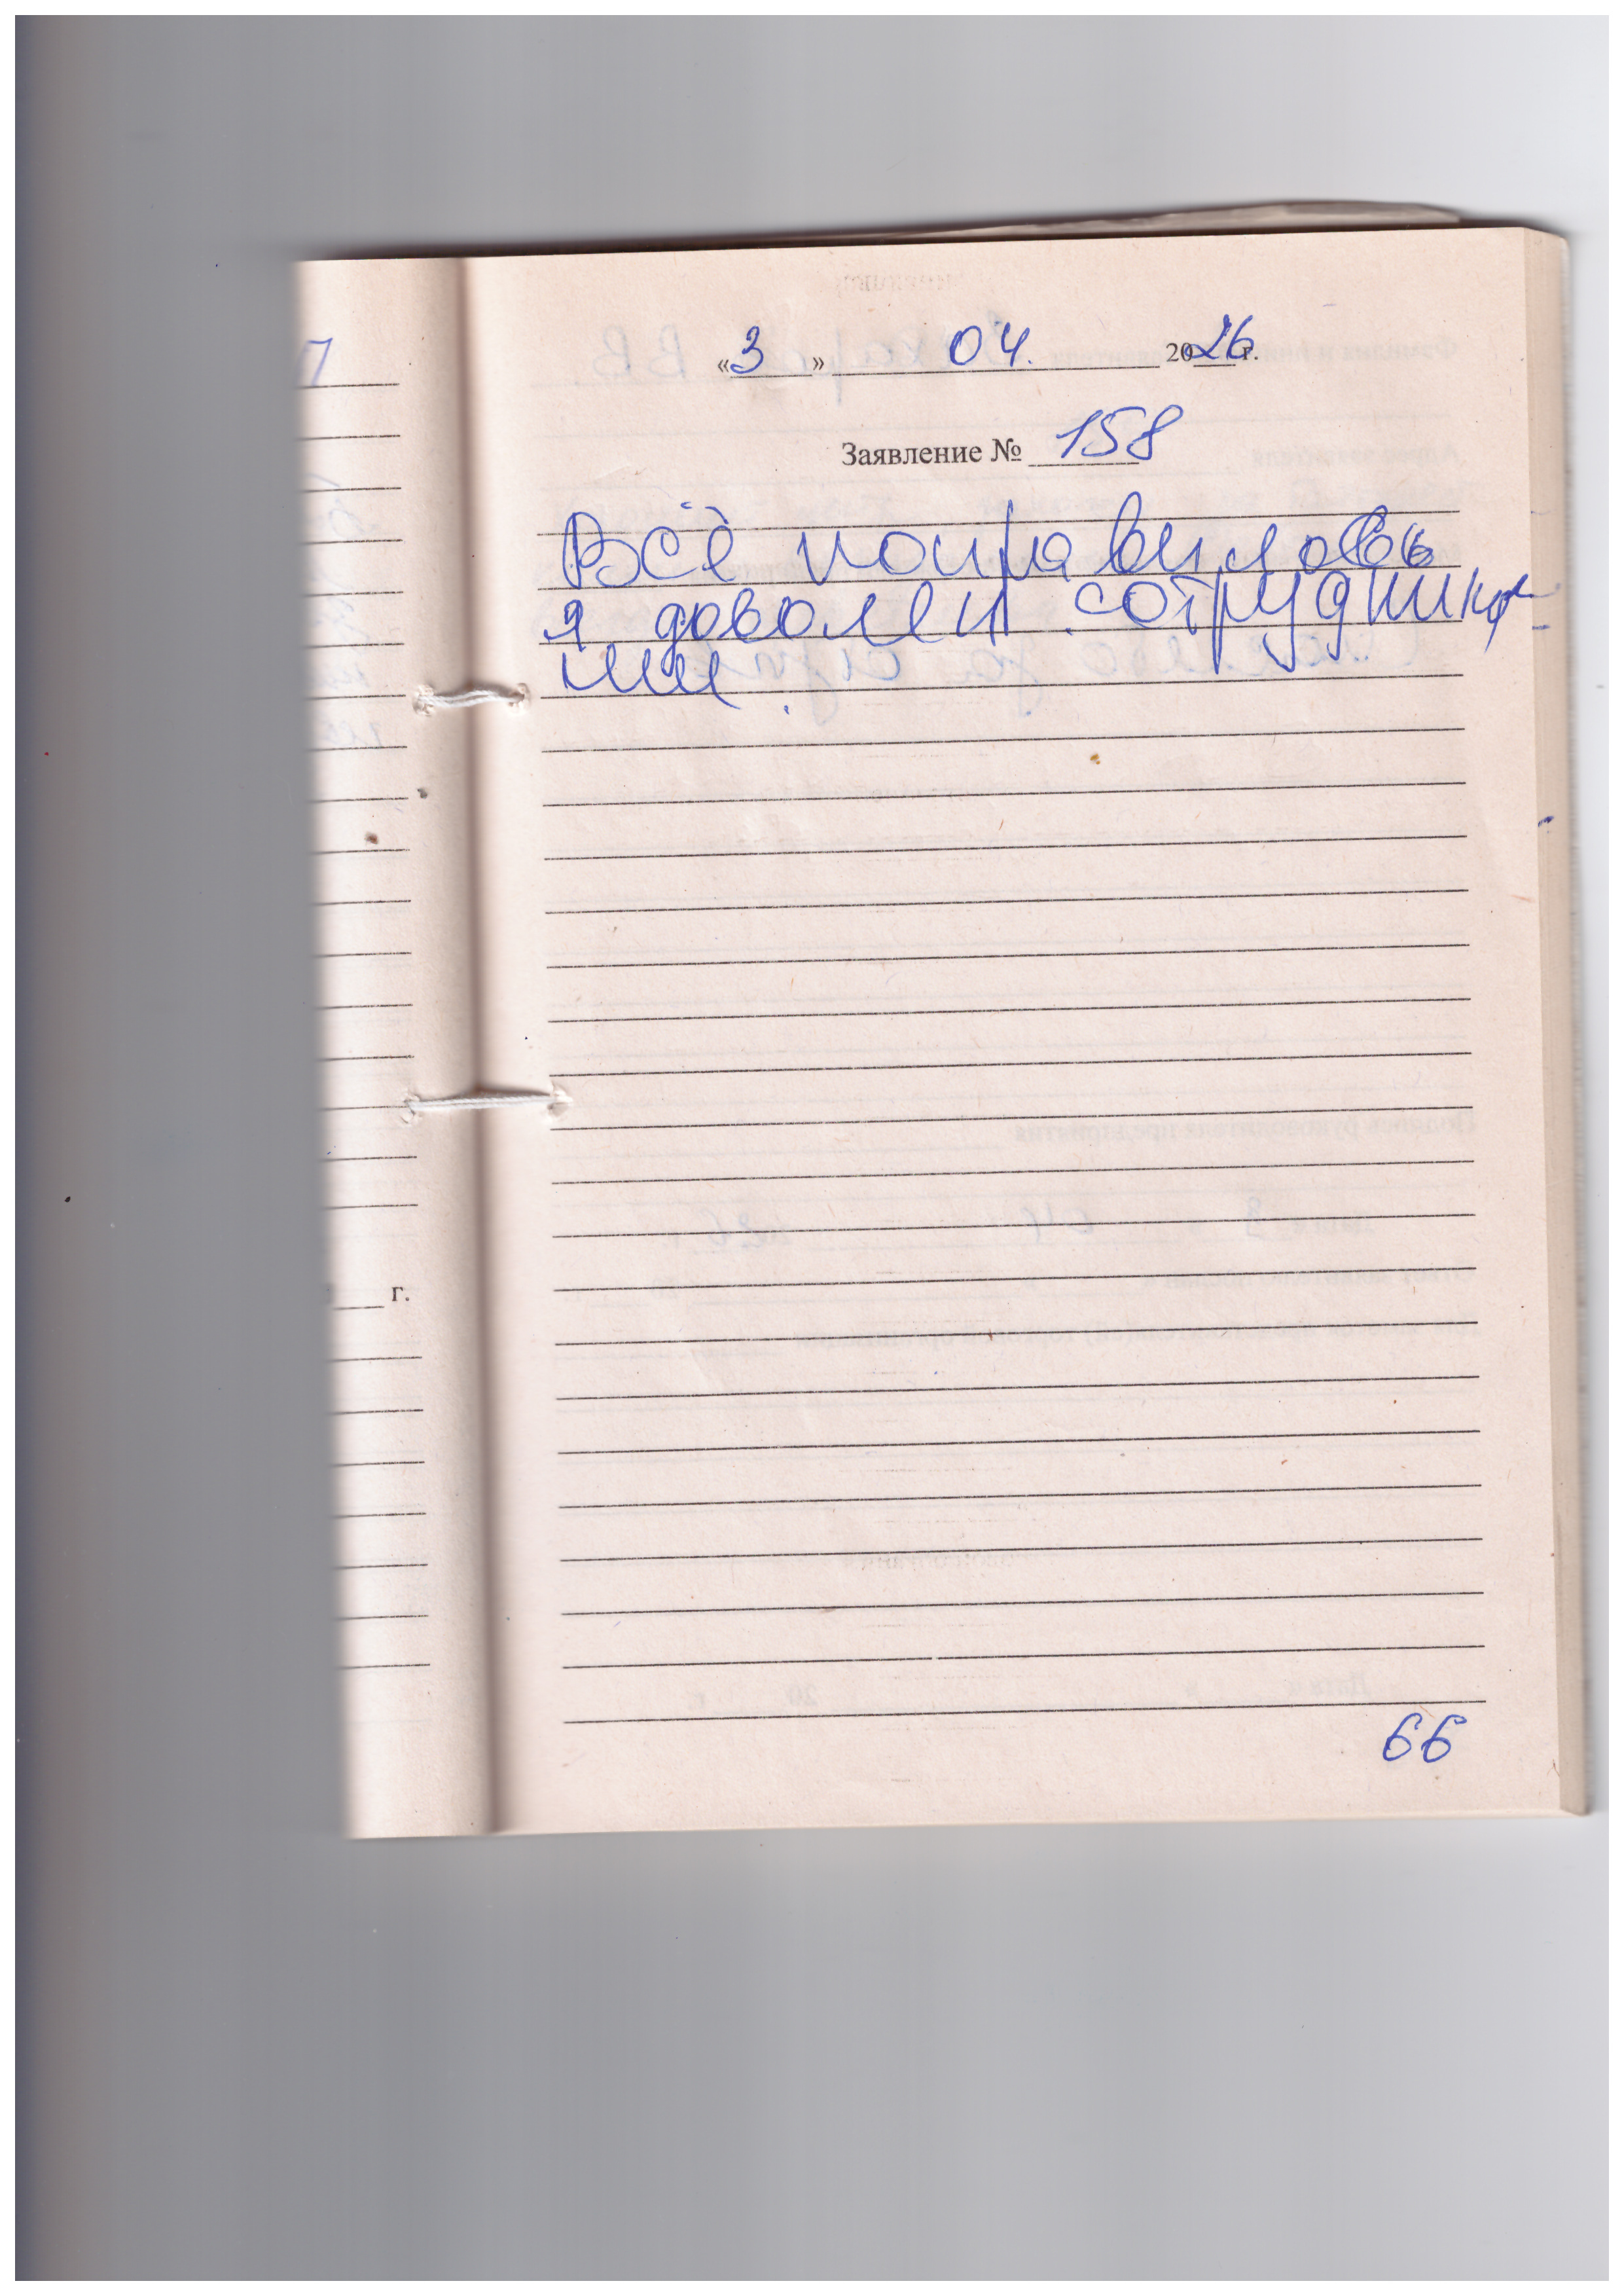 «3» 04. 2026 г.
Заявление № 158
Всё понравилось
я доволен сотрудника
ми.
г.
66